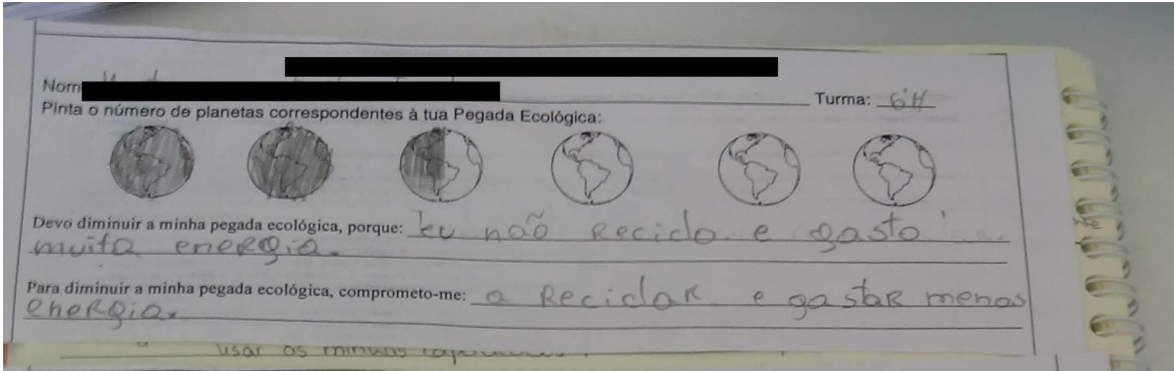 Nom
Turma: 6ºH
Pinta o número de planetas correspondentes à tua Pegada Ecológica:
Devo diminuir a minha pegada ecológica, porque: Eu não Reciclo e gasto
muita energia.
Para diminuir a minha pegada ecológica, comprometo-me: a Reciclar e gastar menos
energia.
usar os minhas